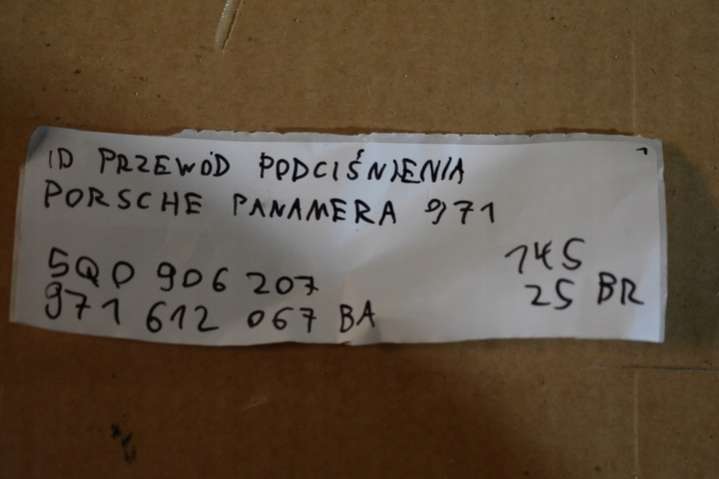 ID PRZEWÓD PODCIŚNIENIA
PORSCHE PANAMERA 971
5Q0 906 207
145
971 612 067 BA
25 BR